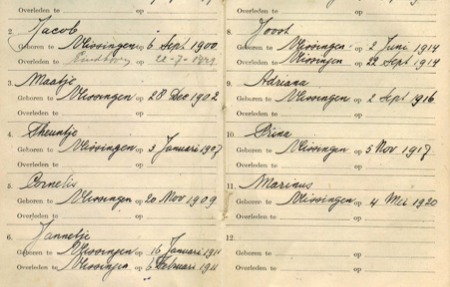 Overleden te op
2. Jacob
Geboren te Vlissingen op 6 Sept 1900
Overleden te op 22-7-
3. Maatje
Geboren te Vlissingen op 28 Dec 1902
Overleden te op
4. Theuntje
Geboren te Vlissingen op 3 Januari 1907
Overleden te op
5. Cornelis
Geboren te Vlissingen op 20 Nov 1909
Overleden te op
6. Jannetje
Geboren te Vlissingen op 16 Januari 1911
Overleden te Vlissingen op 6 Februari 1911
Overleden te op
8. Joost
Geboren te Vlissingen op 2 Juni 1914
Overleden te Vlissingen op 22 Sept 1914
9. Adriana
Geboren te Vlissingen op 2 Sept 1916
Overleden te op
10. Prina
Geboren te Vlissingen op 5 Nov 1917
Overleden te op
11. Marinus
Geboren te Vlissingen op 4 Mei 1920
Overleden te op
12.
Geboren te op
Overleden te op